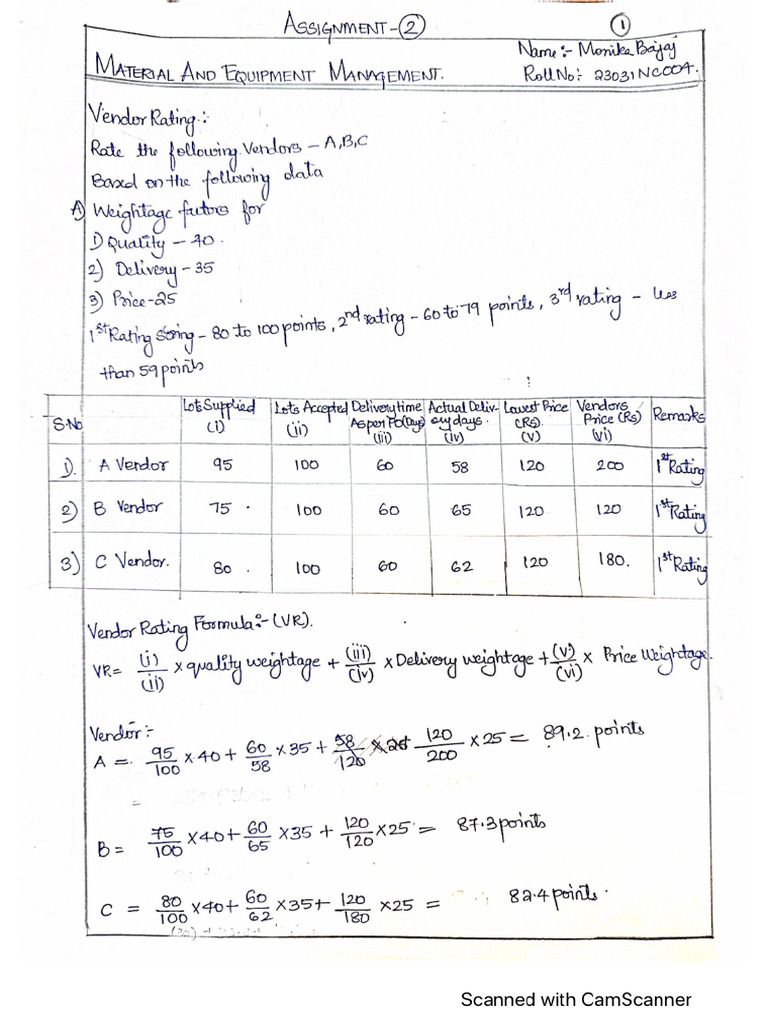 ASSIGNMENT-②
①
Name:- Monika Bajaj
MATERIAL AND EQUIPMENT MANAGEMENT.
Roll No:- 23031NC004.
Vendor Rating:-
Rate the following Vendors - A,B,C
Based on the following data
A) Weightage factors for
1) Quality - 40.
2) Delivery - 35
3) Price - 25
1st Rating - 80 to 100 points, 2nd rating - 60 to 79 points, 3rd rating - less
than 59 points
S.No Lots Supplied (i) Lots Accepted (ii) Delivery time As per PO(Days) (iii) Actual Delivery days. (iv) Lowest Price (Rs). (v) Vendors Price (Rs) (vi) Remarks
1). A Vendor 95 100 60 58 120 200 1st Rating
2) B Vendor 75 100 60 65 120 120 1st Rating
3) C Vendor. 80 100 60 62 120 180. 1st Rating
Vendor Rating Formula:- (VR).
VR = (i)/(ii) × quality weightage + (iii)/(iv) × Delivery weightage + (v)/(vi) × Price Weightage.
Vendor:-
A = 95/100 × 40 + 60/58 × 35 + 120/200 × 25 = 89.2 points
B = 75/100 × 40 + 60/65 × 35 + 120/120 × 25 = 87.3 points
C = 80/100 × 40 + 60/62 × 35 + 120/180 × 25 = 82.4 points.
Scanned with CamScanner